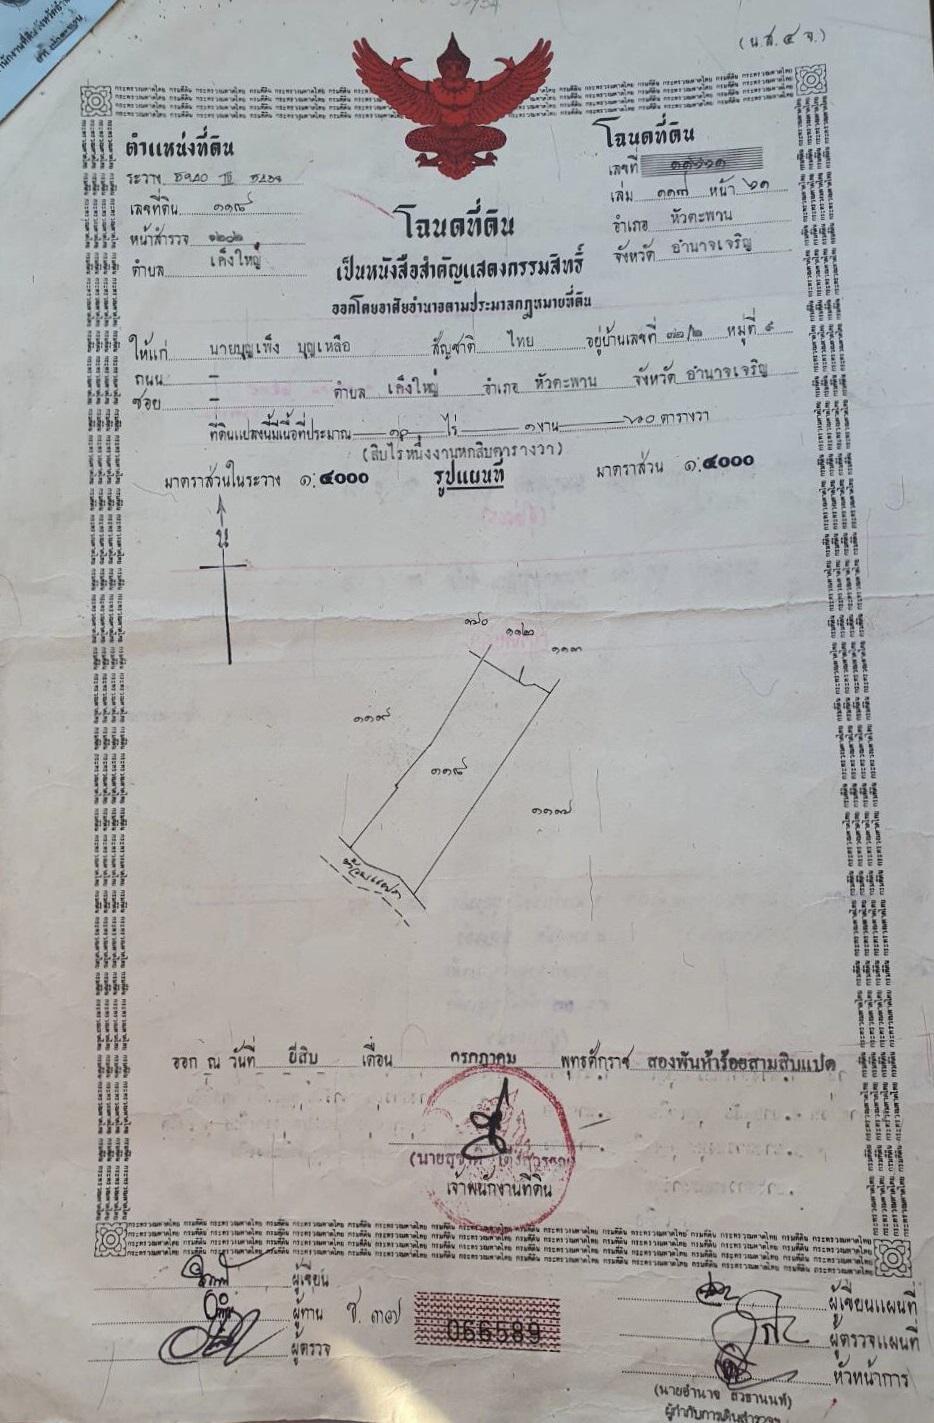 (น.ส.๔ จ.)
ตำแหน่งที่ดิน
ระวาง
เลขที่ดิน ๑๑๘
หน้าสำรวจ ๑๒๐๒
ตำบล เค็งใหญ่
โฉนดที่ดิน
เลขที่
เล่ม ๑๑๗ หน้า ๒๑
อำเภอ หัวตะพาน
จังหวัด อำนาจเจริญ
โฉนดที่ดิน
เป็นหนังสือสำคัญแสดงกรรมสิทธิ์
ออกโดยอาศัยอำนาจตามประมวลกฎหมายที่ดิน
ให้แก่ นายบุญเพ็ง บุญเหลือ สัญชาติ ไทย อยู่บ้านเลขที่ ๓๒/๒ หมู่ที่ ๙
ถนน –
ซอย – ตำบล เค็งใหญ่ อำเภอ หัวตะพาน จังหวัด อำนาจเจริญ
ที่ดินแปลงนี้มีเนื้อที่ประมาณ ๑๐ ไร่ ๑ งาน ๖๐ ตารางวา
(สิบไร่หนึ่งงานหกสิบตารางวา)
มาตราส่วนในระวาง ๑:๔๐๐๐ รูปแผนที่ มาตราส่วน ๑:๔๐๐๐
น
๑๑๒
๑๑๓
๑๑๙
๑๑๘
๑๑๗
ออก ณ วันที่ ยี่สิบ เดือน กรกฎาคม พุทธศักราช สองพันห้าร้อยสามสิบแปด
เจ้าพนักงานที่ดิน
ผู้เขียน
ผู้ทาน ช. ๓๗
ผู้ตรวจ
066589
ผู้เขียนแผนที่
ผู้ตรวจแผนที่
หัวหน้าการ
ผู้กำกับการเดินสำรวจฯ